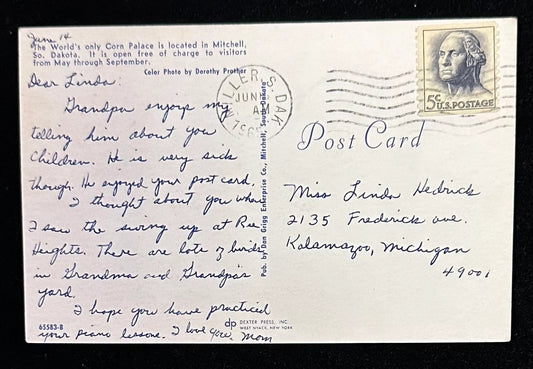 June 14
The World's only Corn Palace is located in Mitchell,
So. Dakota. It is open free of charge to visitors
from May through September.
Color Photo by Dorothy Prather
Dear Linda:
Grandpa enjoys my
telling him about you
children. He is very sick
though. He enjoyed your post card.
I thought about you when
I saw the swing up at Ree
Heights. There are lots of birds
in Grandma and Grandpa's
yard.
I hope you have practiced
your piano lessons. I love you. Mom
65583-B
Pub. by Dan Grigg Enterprise Co., Mitchell, South Dakota
dp DEXTER PRESS, INC.
WEST NYACK, NEW YORK
MILLER, S. DAK
JUN
AM
5¢ U.S. POSTAGE
Post Card
Miss Linda Hedrick
2135 Frederick ave.
Kalamazoo, Michigan
49001